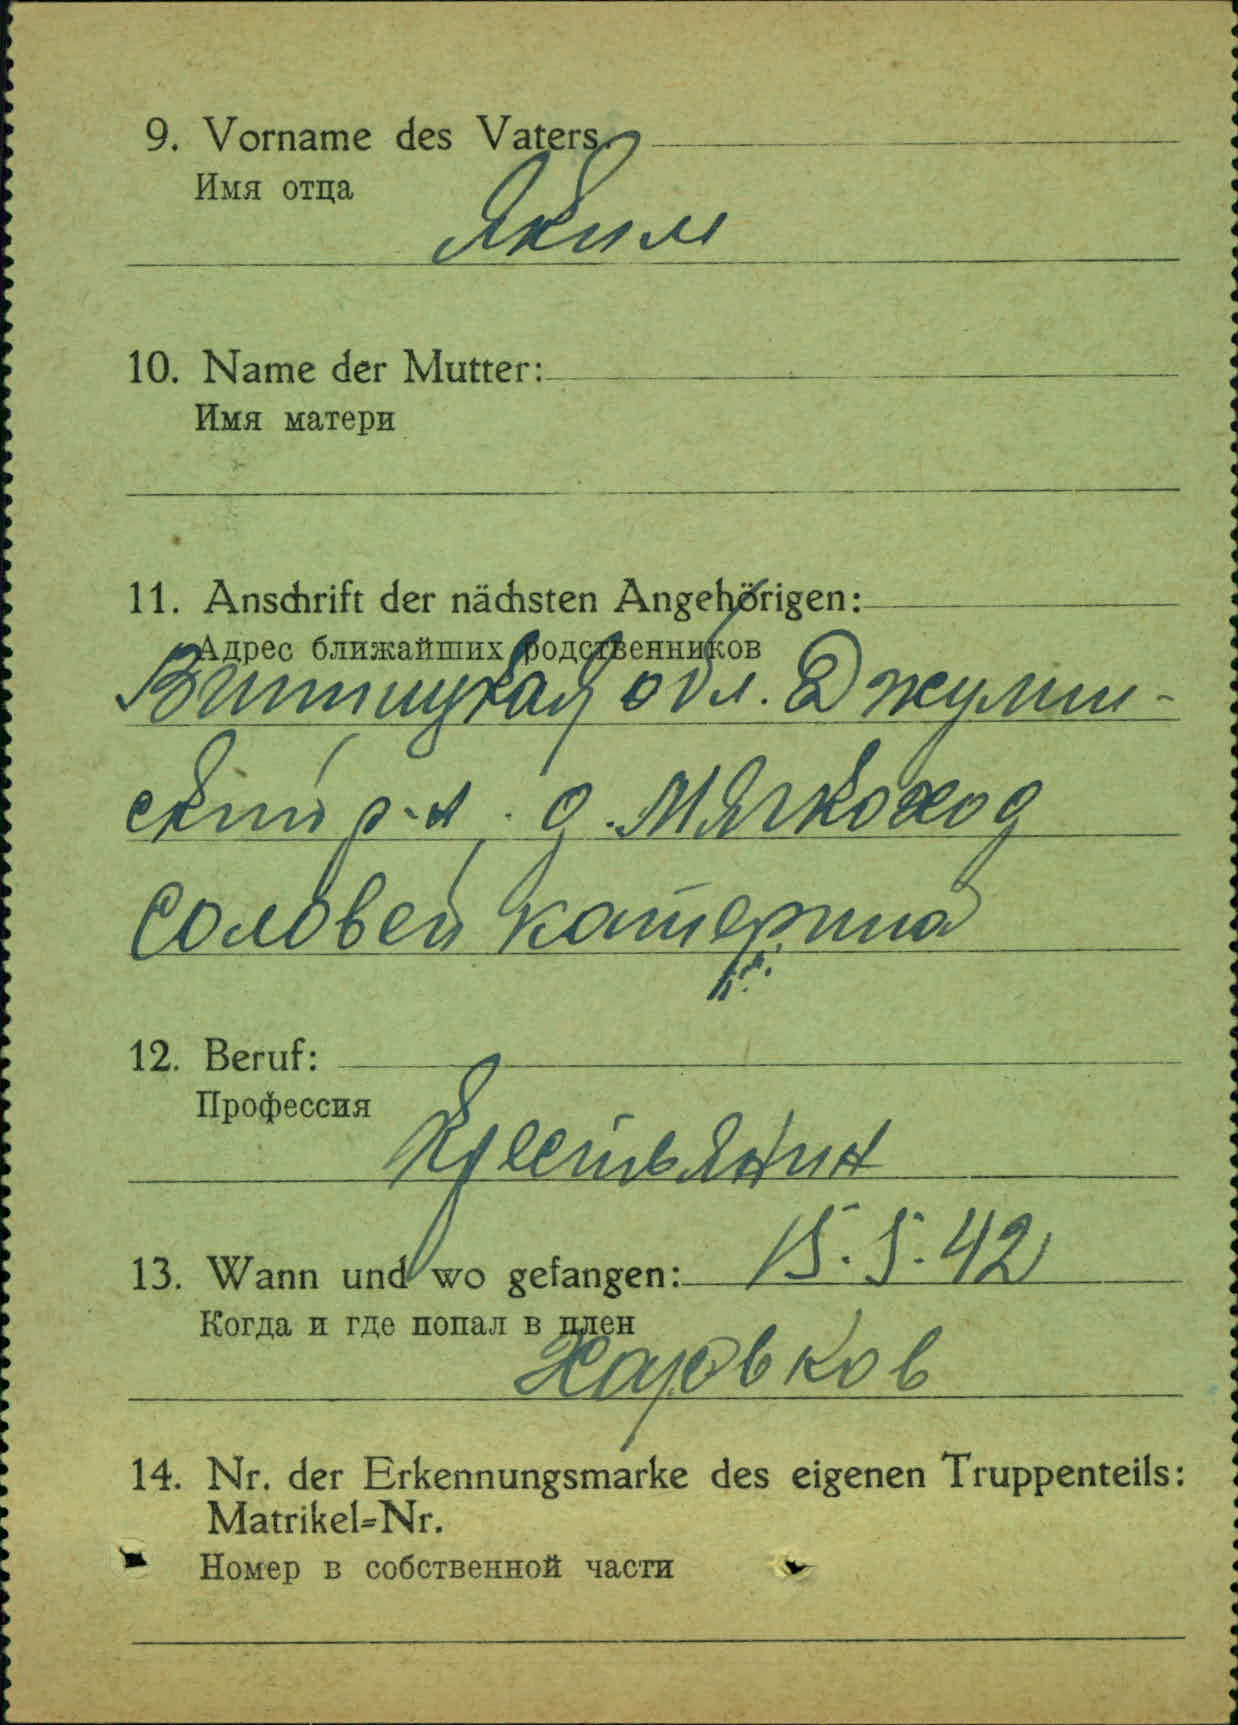 9. Vorname des Vaters
Имя отца
Яким
10. Name der Mutter:
Имя матери
11. Anschrift der nächsten Angehörigen:
Адрес ближайших родственников
Винницкая обл. Джулин-
ский р-н. д. Мягкоход
Соловей Катерина
12. Beruf:
Профессия
Крестьянин
13. Wann und wo gefangen: 15.5.42
Когда и где попал в плен
Харьков
14. Nr. der Erkennungsmarke des eigenen Truppenteils:
Matrikel-Nr.
Номер в собственной части